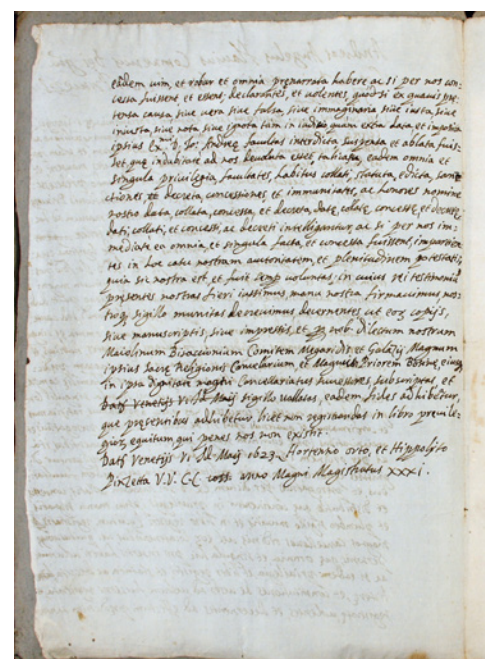 eadem uim, et robur et omnia prenarrata habere ac si per nos con-
cessa fuissent, et essent, declarantes, et uolentes, quod si ex quauis pre-
tensa causa, siue uera siue falsa, siue immaginaria siue iusta, siue
iniusta, siue nota siue ignota tam in iudicio quam extra data, et impartita
ipsius Ex. D. Io: Andree facultas interdicta suspensa et ablata fuis-
set, que indubitate ad nos deuoluta esset taliasque eadem omnia et
singula priuilegia, facultates, habitus collati, statuta, edicta, sanc-
ctiones, et decreta, concessiones, et immunitates, ac honores nomine
nostro data, collata, concessa, et decreta, date, collate, concesse, et decrete
dati, collati, et concessi, ac decreti intelligantur, ac si per nos im-
mediate ea omnia, et singula facta, et concessa fuissent, impartien
tes in hoc casu nostram auctoritatem, et plenitudinem potestatis,
quia sic nostra est, et fuit semper uoluntas, in cuius rei testimonium
presentes nostras fieri iussimus, manu nostra firmauimus nos-
troque sigillo munitas decreuimus decernentes ut eorum copijs,
siue manuscriptis, siue impressis, et per nob. dilectum nostrum
Maiolinum Bisaccionium Comitem Megaridis et Galatij, Magnum
ipsius sacre Religionis Cancellarium, et Magnum Priorem Bosne, eiusque
in ipsa dignitate magni Cancellariatus successores, subscriptas, et
sigillo uallatas, eadem fides adhibeatur,
que presentibus adhibetur, licet non registrandas in libro preuile-
giorum equitum qui penes nos non existit.
Datis Venetijs VI de Maij 1623. Hortensio orto, et Hippolyto
V.V. C.C. coss. anno Magni Magistratus XXXI.